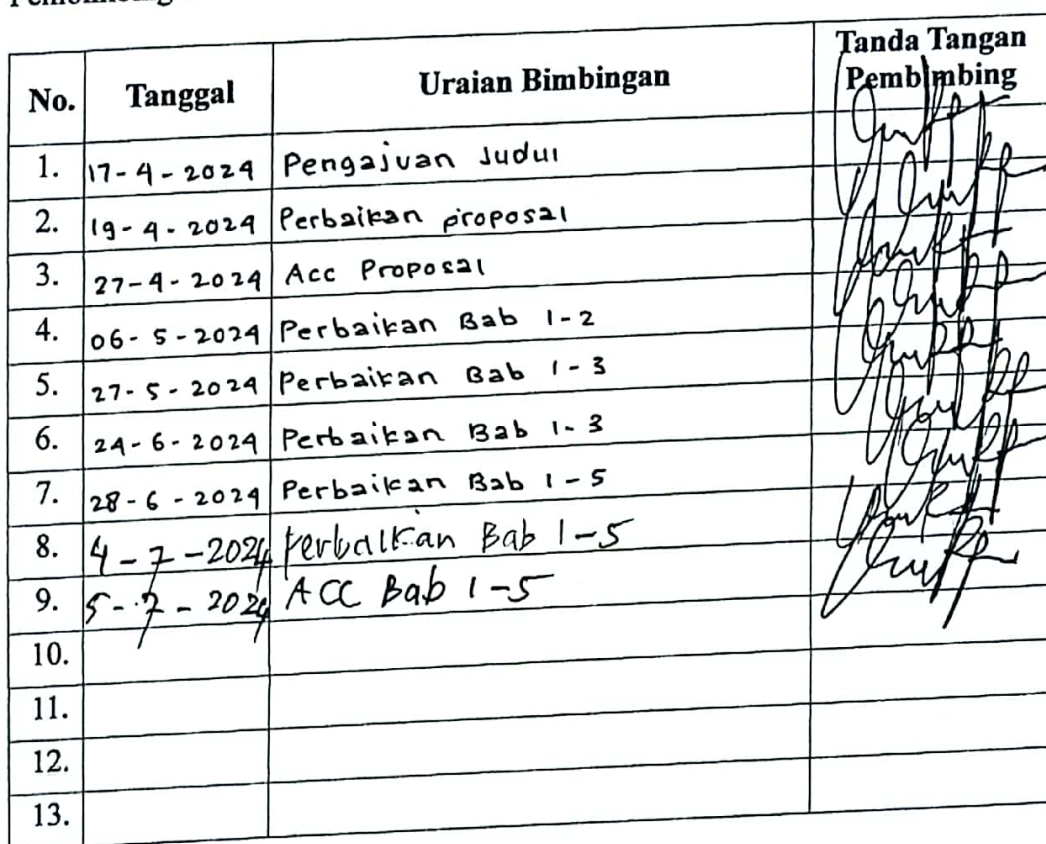 No. Tanggal Uraian Bimbingan Tanda Tangan Pembimbing
1. 17-4-2024 Pengajuan Judul
2. 19-4-2024 Perbaikan proposal
3. 27-4-2024 Acc Proposal
4. 06-5-2024 Perbaikan Bab 1-2
5. 27-5-2024 Perbaikan Bab 1-3
6. 24-6-2024 Perbaikan Bab 1-3
7. 28-6-2024 Perbaikan Bab 1-5
8. 4-7-2024 Perbaikan Bab 1-5
9. 5-7-2024 ACC Bab 1-5
10.
11.
12.
13.